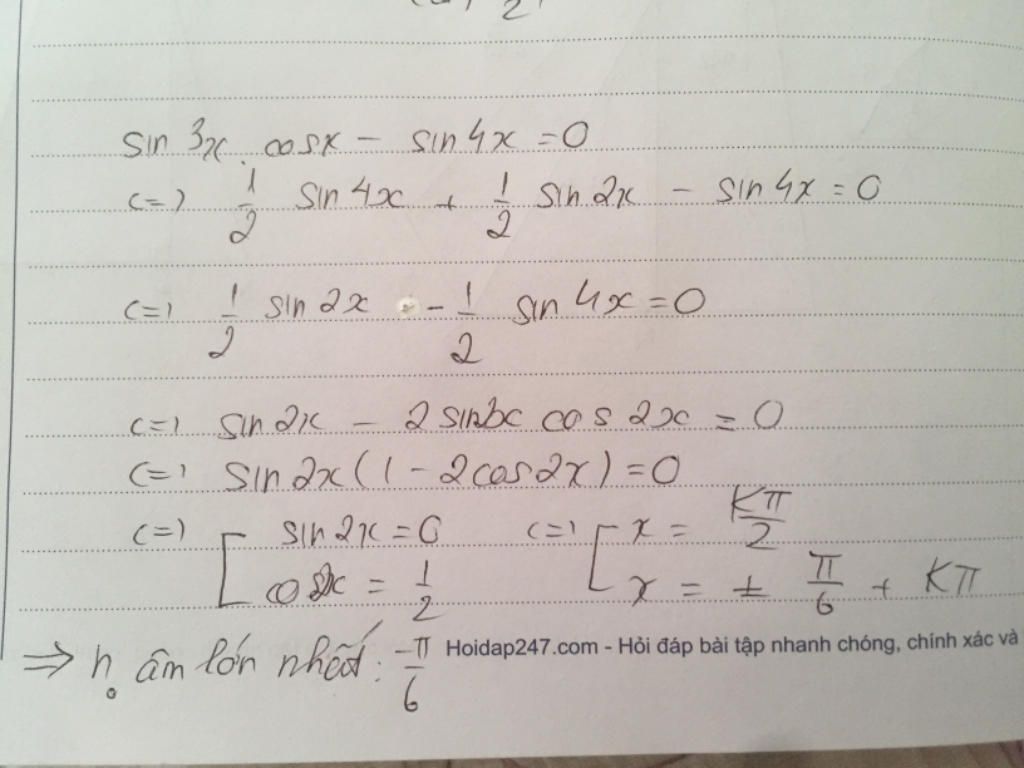 2
sin 3x . cosx - sin 4x = 0
<=> 1/2 sin 4x + 1/2 sin 2x - sin 4x = 0
<=> 1/2 sin 2x - 1/2 sin 4x = 0
<=> sin 2x - 2 sin2x cos 2x = 0
<=> sin 2x (1 - 2cos 2x) = 0
<=> [ sin 2x = 0 <=> [ x = Kπ/2
cos2x = 1/2 x = ± π/6 + Kπ
=> no âm lớn nhất: -π/6
Hoidap247.com - Hỏi đáp bài tập nhanh chóng, chính xác và